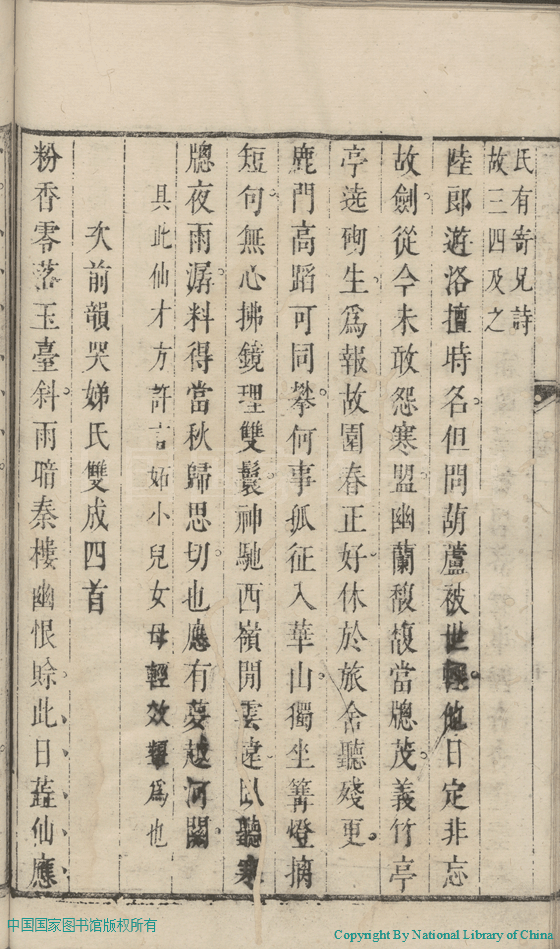 氏有寄兄詩
故三四及之
陸郎遊洛擅時名但問葫蘆被世輕他日定非忘
故劍從今未敢怨寒盟幽蘭馥馥當牕茂義竹亭
亭遶砌生爲報故園春正好休於旅舍聽殘更
鹿門高蹈可同攀何事孤征入華山獨坐篝燈摘
短句無心拂鏡理雙鬟神馳西嶺閒雲遠臥聽寒
牕夜雨潺料得當秋歸思切也應有夢越河關
具此仙才方許言妬小兒女毋輕效顰爲也
次前韻哭娣氏雙成四首
粉香零落玉臺斜雨暗秦樓幽恨賒此日蕋仙應
中国国家图书馆版权所有
Copyright By National Library of China